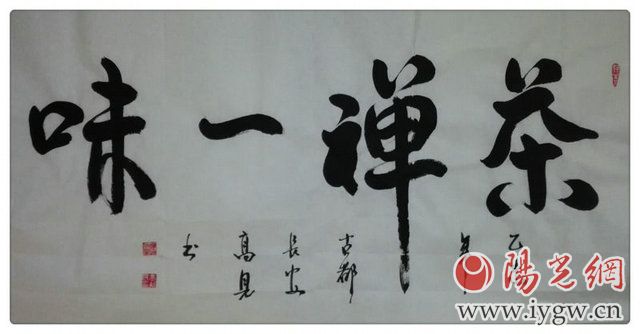 茶禅一味
古都
長安
高見
书
陽光網
www.iygw.cn